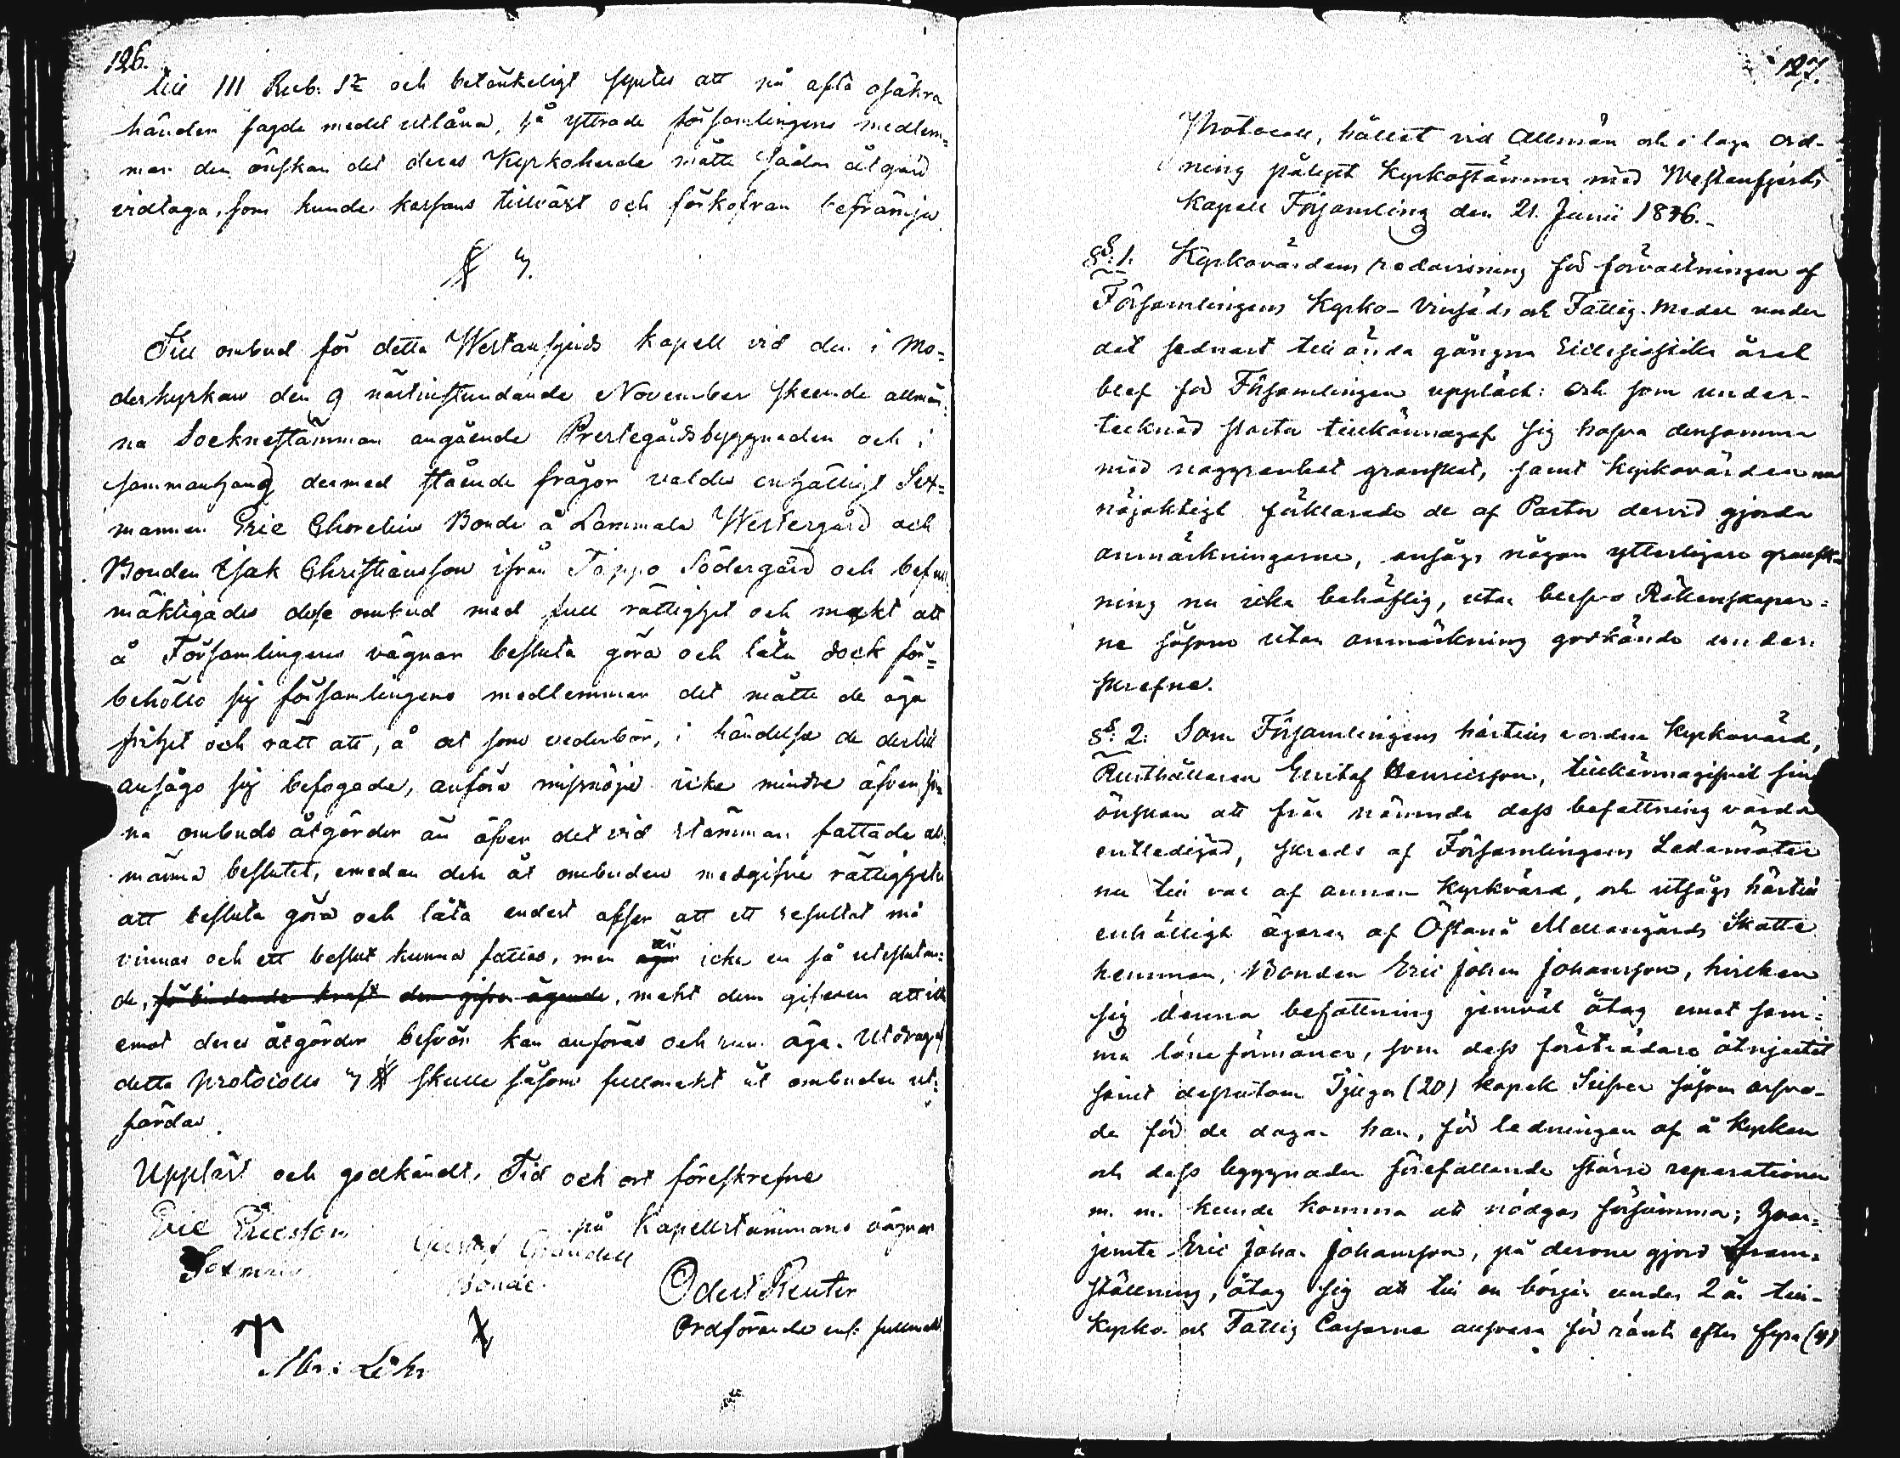 126.
till 111 Rub. S:r och betänkeligt syntes att på ofta osäkra
händer sagde medel utlåna, så yttrade församlingens medlem-
mar den önskan det deras Kyrkoherde måtte sådan åtgärd
vidtaga, som kunde kassans tillväxt och förkofran befrämja.
§ 7.
Till ombud för detta Westanfjerds Kapell vid den i Mo=
derkyrkan den 9 nästinstundande November skeende allmän=
na Sockнestämman angående Prestegårdsbyggnaden och i
sammanhang dermed stående frågor valdes enhälligt Sex=
mannen Eric Thorelius Bonde å Lammala Westergård och
Bonden Isak Christiansson ifrån Tappo Södergård och befull
mäktigades desse ombud med full rättighet och makt att
å Församlingens vägnar besluta göra och låta dock för=
behöllo sig församlingens medlemmar det måtte de äga
frihet och rätt att, å ort som vederbör, i händelse de dertill
ansågo sig befogade, anföra missnöje icke mindre äfven si-
na ombuds åtgärder än äfven det vid stämman fattade all
männa beslutet, emedan den åt ombuden medgifne rättigheten
att besluta göra och låta endast afser att ett resultat må
vinnas och ett beslut kunna fattas, men är icke en så uteslutan=
de, förbindande kraft dem gifven ägande, makt dem gifven att ick
emot deras åtgärder besvär kan anföras och rum äga. Utdrag af
detta protocolls 7 § skulle såsom fullmakt åt ombuden ut-
färdas.
Uppläst och godkändt, Tid och ort föreskrefne
på Kapellstämmans vägnar
Eric Ericsson
Sexman
Gustaf Grandell
Bonde
Odert Reuter
Ordförande enl. fullmakt
Abr: Löhr

127.
Protocoll, hållet vid Allmän och i laga ord-
ning pålyst Kyrkostämma med Westanfjerds
Kapell Församling den 21. Junii 1846.
§: 1. Kyrkovärdens redovisning för förvaltningen af
Församlingens Kyrko- Vinsäds och Fattig-Medel under
det sednast till ända gångna Ecclesiastik året
blef för Församlingen uppläst: och som under-
tecknad Pastor tillkännagaf sig hafva densamma
med noggranhet granskat, samt Kyrkovärden nu
nöjaktigt förklarade de af Pastor dervid gjorda
anmärkningarne, ansågs någon ytterligare gransk-
ning nu icke behöflig, utan blefvo Räkenskaper=
ne såsom utan anmärkning godkände under-
skrefne.
§: 2. Som Församlingens härtills vordne Kyrkovärd,
Rusthållaren Gustaf Henricsson, tillkännagifvit sin
önskan att från nämnde dess befattning varda
entledigad, skreds af Församlingens Ledamöter
nu till val af annan Kyrkvärd, och utsågs härtill
enhälligt ägaren af Östanå Mellangårds Skatte
hemman, Bonden Eric Johan Johansson, hvilken
sig denna befattning jemväl åtog emot sam=
ma löneförmåner, som dess företrädare åtnjutit
samt dessutom Tjugu (20) kopek Silfver såsom arfvo-
de för de dagar han, för ledningen af å Kyrkan
och dess byggnader förefallande större reparationer
m. m. kunde komma att nödgas försumma; hvar=
jemte Eric Johan Johansson, på derom gjord fram=
ställning, åtog sig att till en början under 2 år till-
Kyrko- och Fattig Cassorna ansvara för ränta efter fyra (4)